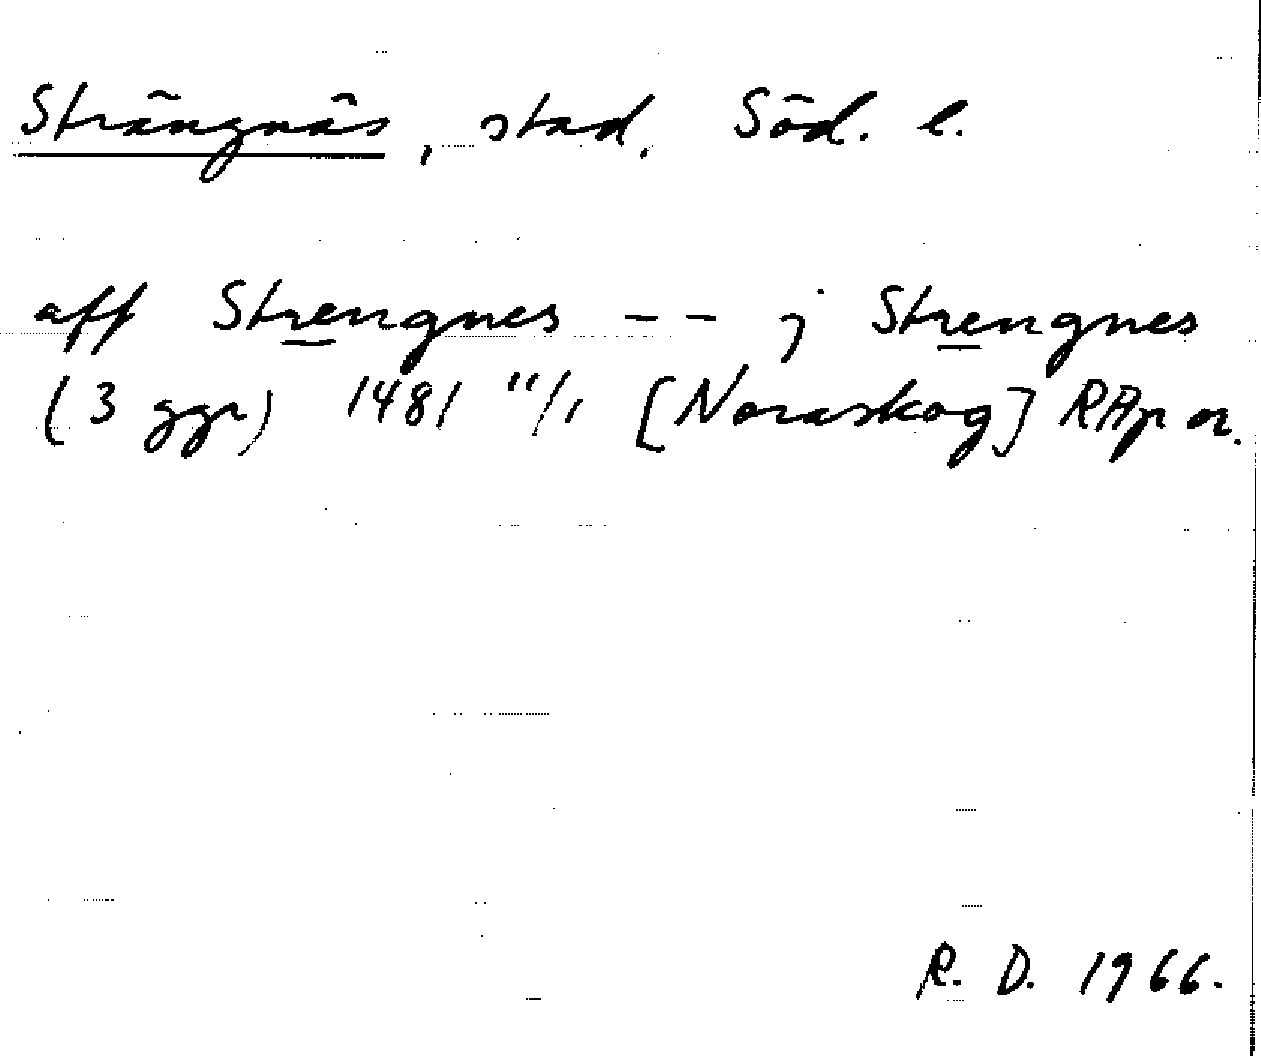 Strängnäs, stad. Söd. l.
aff Strengnes -- j Strengnes
(3 ggr) 1481 11/1 [Noraskog] RAp or.
R. D. 1966.